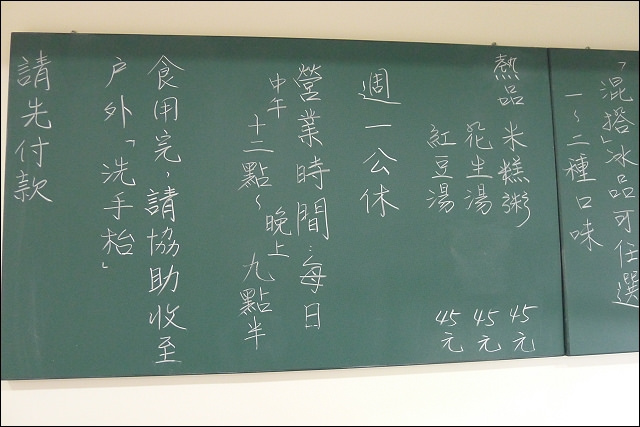 「混搭」冰品可任選
一~二種口味
熱品 米糕粥 45元
花生湯 45元
紅豆湯 45元
週一公休
營業時間：每日
中午十二點~晚上九點半
食用完，請協助收至
戶外「洗手枱」
請先付款